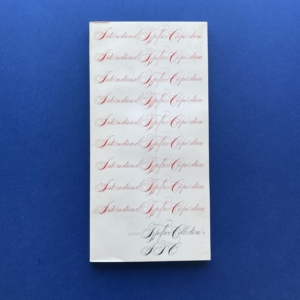 International Typeface Corporation
International Typeface Corporation
International Typeface Corporation
International Typeface Corporation
International Typeface Corporation
International Typeface Corporation
International Typeface Corporation
International Typeface Corporation
International Typeface Corporation
Typeface Collection